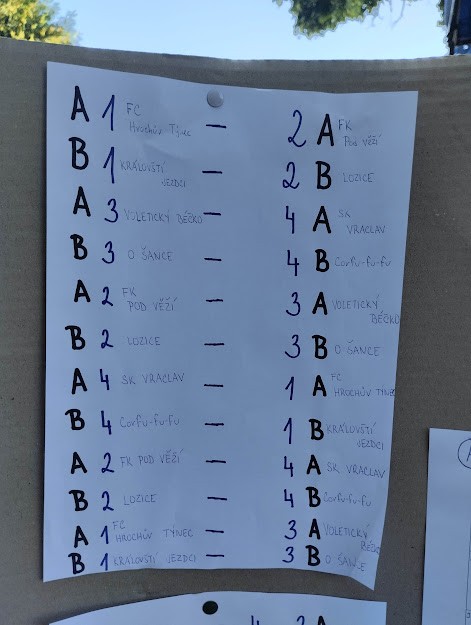 A 1 FC Hrochův Týnec — 2 A FK Pod věží
B 1 KRÁLOVŠTÍ JEZDCI — 2 B LOZICE
A 3 VOLETICKÝ BÉČKO — 4 A SK VRACLAV
B 3 O ŠANCE — 4 B Corfu-fu-fu
A 2 FK POD VĚŽÍ — 3 A VOLETICKÝ BÉČKO
B 2 LOZICE — 3 B O ŠANCE
A 4 SK VRACLAV — 1 A FC HROCHŮV TÝNEC
B 4 Corfu-fu-fu — 1 B KRÁLOVŠTÍ JEZDCI
A 2 FK POD VĚŽÍ — 4 A SK VRACLAV
B 2 LOZICE — 4 B Corfu-fu-fu
A 1 FC HROCHŮV TÝNEC — 3 A VOLETICKÝ BÉČKO
B 1 KRÁLOVŠTÍ JEZDCI — 3 B O ŠANCE